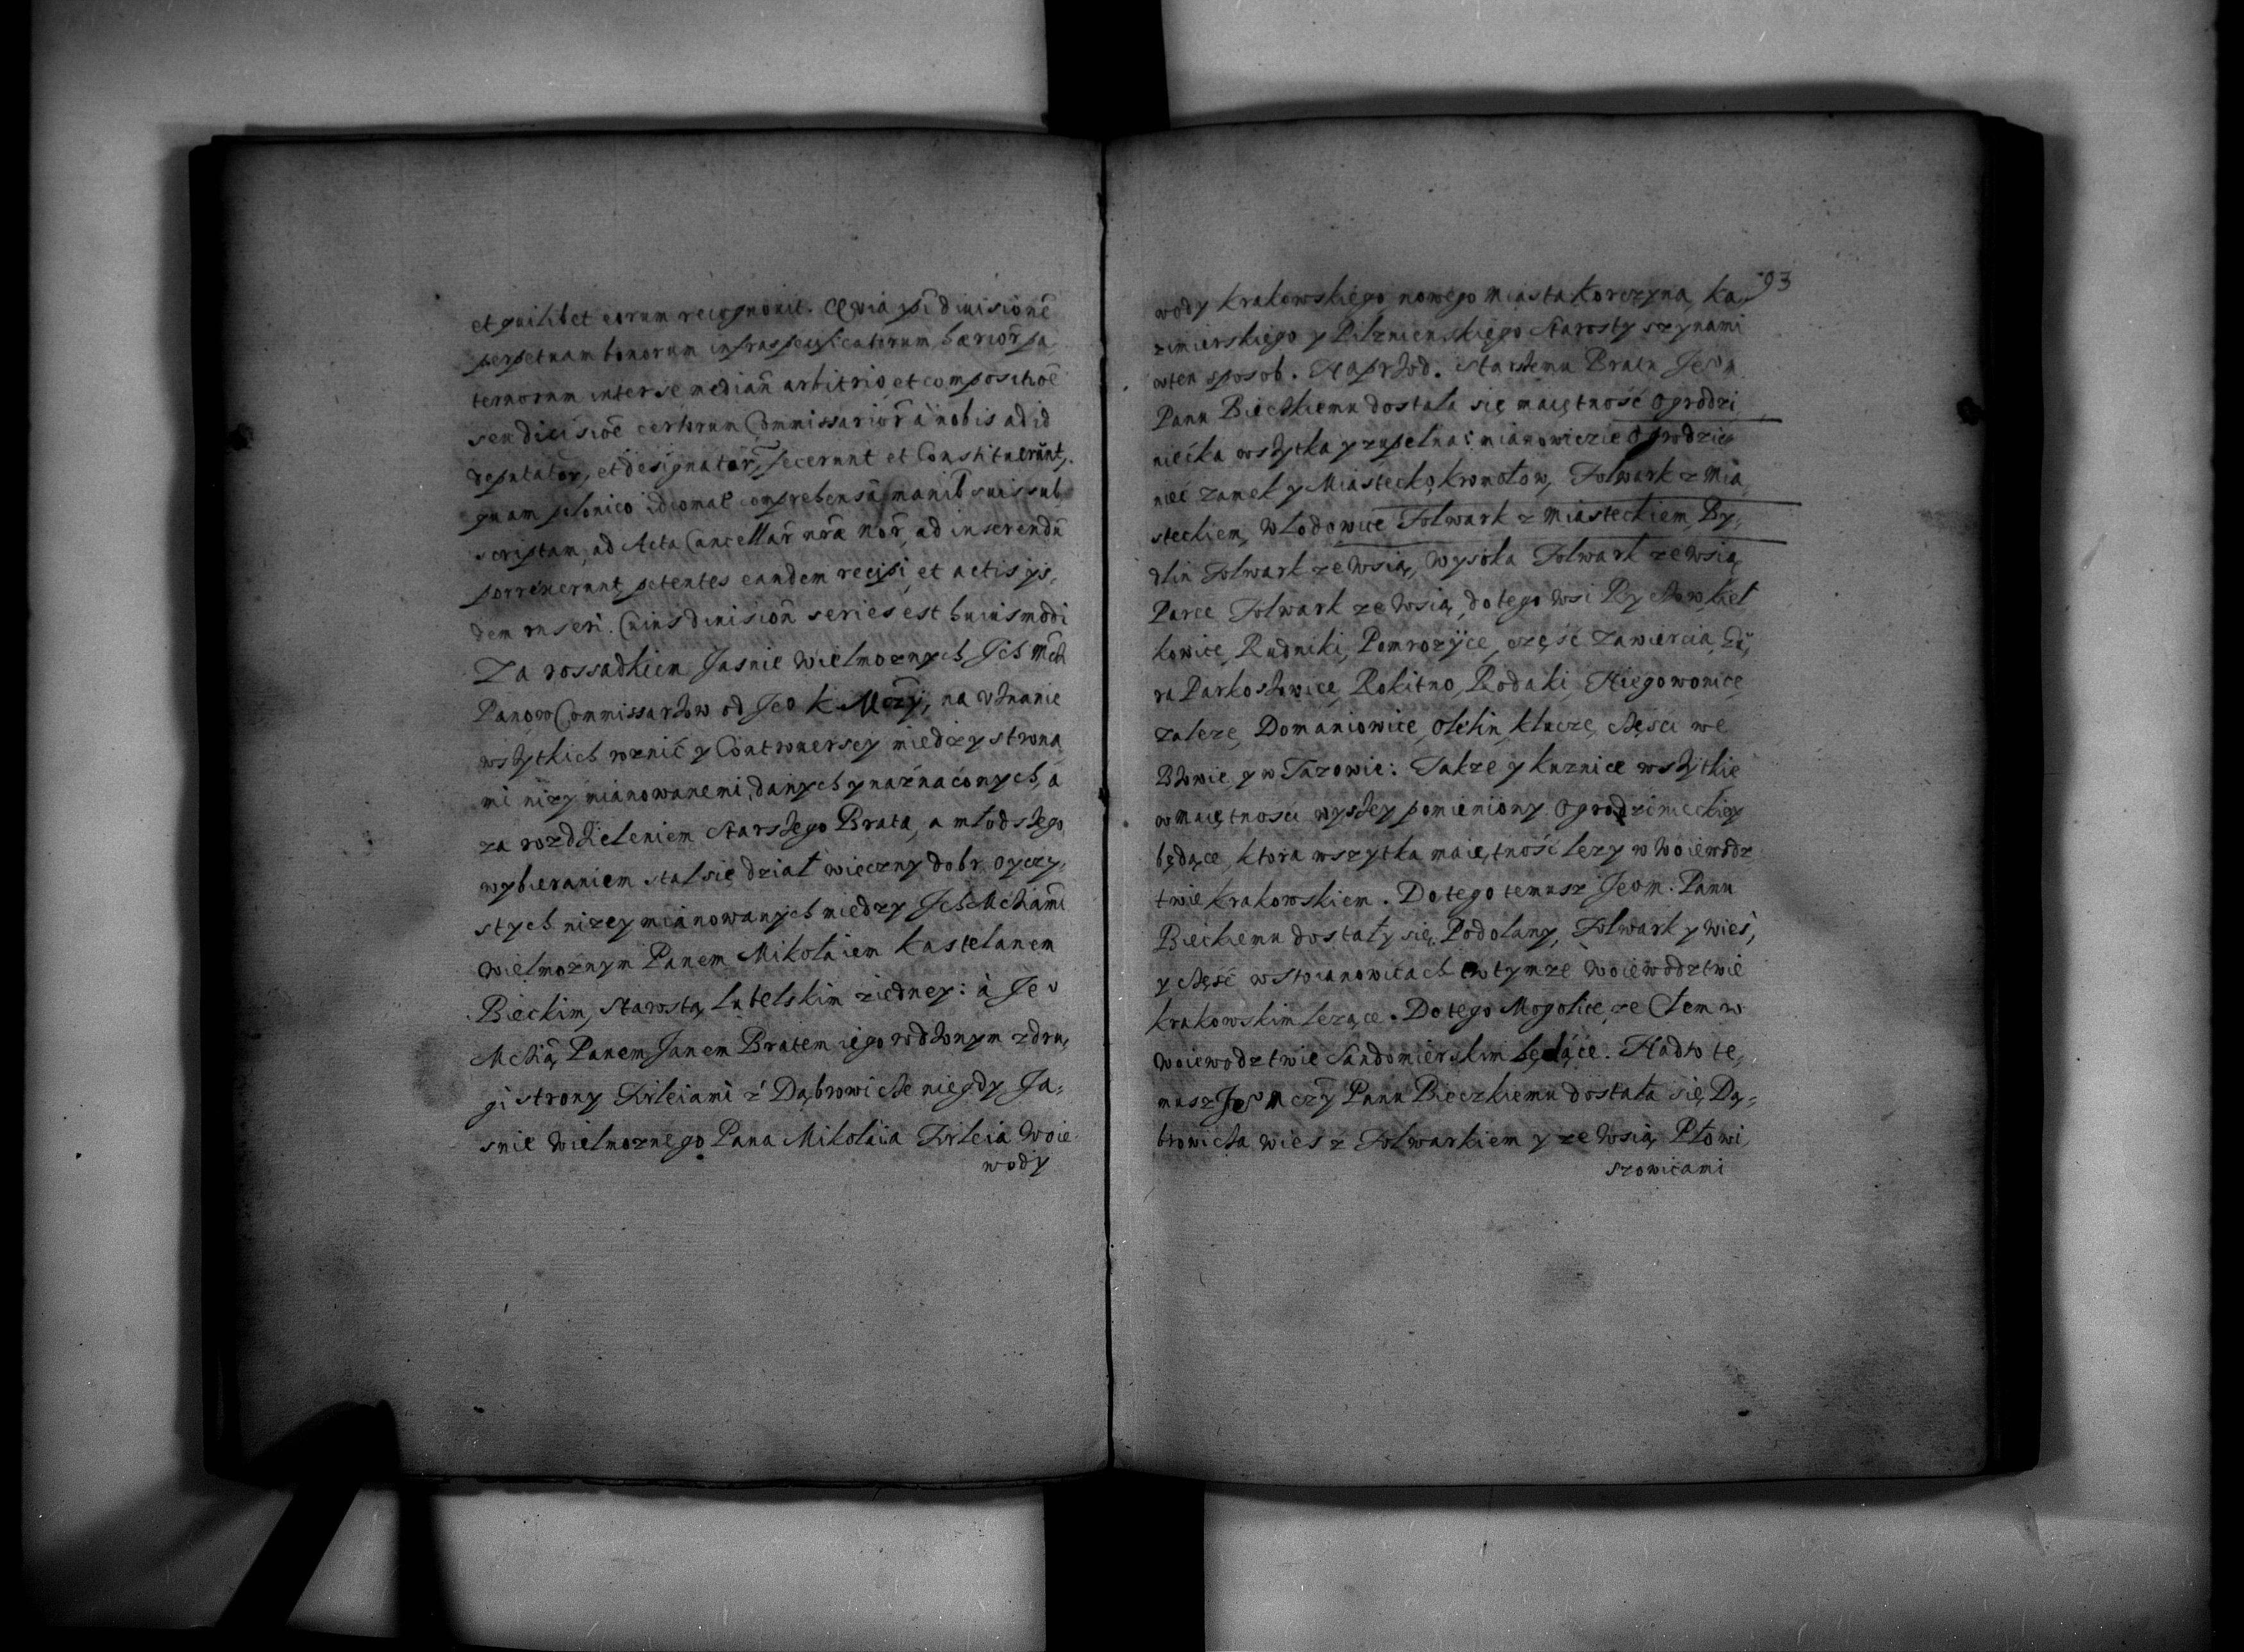 et quilibet eorum recognouit. Quia ipsi diuisionē
perpetuam bonorum infraspecificatorum, hæriōr pa
ternorum inter se median̄ arbitrio et compositiōe
seu diuisiōe certorum Commissariōr a nobis ad id
deputatōr, et designatōr, fecerunt et Constituerūnt,
quam polonico idiomate comprehensā, manib suis sub
scriptam, ad Acta Cancellar̄ nr̄æ nōr, ad inserendū
porrexerunt, petentes eandem recipi, et actis ijs,
dem inseri. Cuius diuision̄ series est huiusmodi
Za rossadkiem Jasnie Wielmoznych Jch Mch
Panow Commissarzow od Jeo K Mczy, na vznanie
wszytkich roznic y Contwuersey miedzy strona
mi nizy mianowanemi, danych y naznaconych, a
za rozdzieleniem starszego Brata, a młodszego
wybieraniem stal sie dział wieczny dobr oyczy,
stych nizey mianowanych miedzy Jch Mchami
Wielmoznym Panem Mikołaiem Kastelanem
Bieckim, Starostą Lubelskim ziedney: à Jeo
Mchią Panem Janem Bratem iego rodzonym z dru,
gi strony Firleiami z Dąbrowicze niegdy Ja,
snie Wielmoznego Pana Mikołaia Firleia Woie
wody
93
wody Krakowskiego nowego Miasta Korczyna, Ka,
zimierskiego y Pilznienskiego Starosty synami
w ten sposob. Naprzod. starszemu Bratu Jeo M
Panu Bieckiemu dostała się maiętność Ogrodzi,
niecka wszytka y zupełna: mianowiczie Ogrodzie
niec Zamek y Miastecko, Kromołow, Folwark z Mia,
steckiem, Wlodowice Folwark z Miasteckiem, By,
dlin Folwark ze Wsią, Wysoka Folwark ze Wsią
Parce Folwark ze Wsią, do tego Wsi Ryczow, Kiel
kowice, Rudniki, Pomrozyce, część Zawiercia, Zu,
ra Parkoszowice, Rokitno, Rodaki, Niegowonice,
Zalezę, Domaniowice, Olchin, Klucze, części we
Bzowie, y w Tazowie: Takze y Kuznice wszytkie
w maiętnosci wyszey pomieniony Ogrodzinieckiey
będące, ktora wszytka maiętność lezy w Woiewodz
twie Krakowskiem. Do tego temusz Jeo M. Panu
Bieckiemu dostały się, Podolany, Folwark y wieś,
y część w Stoianowicach w tymze Woiewodztwie
Krakowskim lezące. Do tego Mogolice, ze Clem w
Woiewodztwie Sandomierskim będące. Nadto te,
musz Jeo Mczy Panu Bieczkiemu dostała się Dą,
browicza wies z Folwarkiem y ze Wsią Płowi,
szowicami